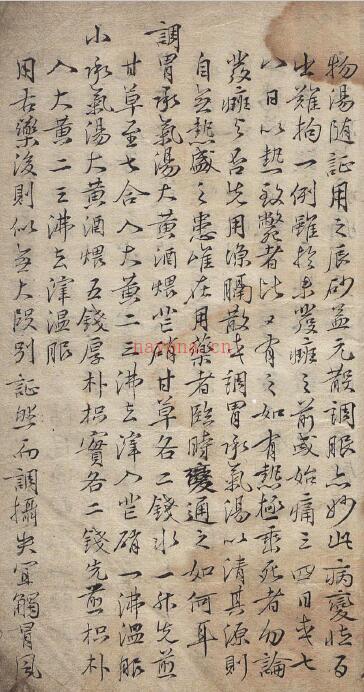 物湯随証用之辰砂益元散調服亦妙此病變恠百
出難拘一例雖於未發㾮之前或始痛三四日或七
八日以熱致斃者比〻有之如有熱極垂死者勿論
發㾮与否先用凉膈散或調胃承氣湯以清其源則
自無熱盛之患唯在用藥者臨時變通之如何耳
調胃承氣湯大黃酒煨芒硝甘草各二錢水一升先煎
甘草至七合入大黃二三沸去滓入芒硝一沸溫服
小承氣湯大黃酒煨五錢厚朴枳實各二錢先煎枳朴
入大黃二三沸去滓溫服
用右藥後則似無大段別証然而調攝失宜觸冒風